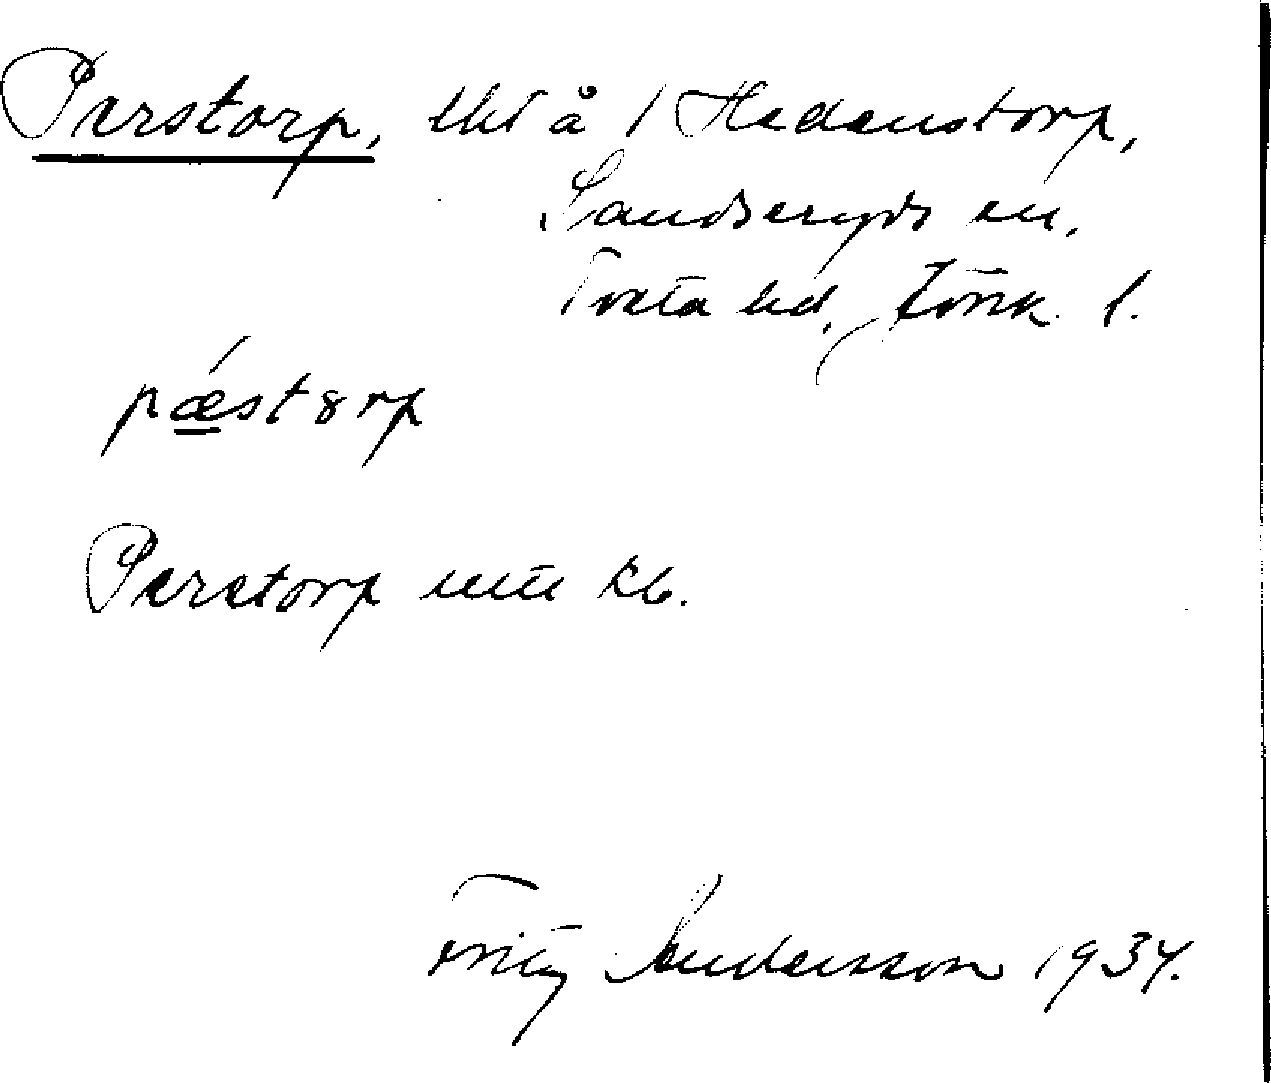 Perstorp, tkt å 1 Hedenstorp,
Sandseryds sn.
Tveta hd, Jönk. l.
pǽst8rp
Perstorp kb.
Fritz Andersson 1934.